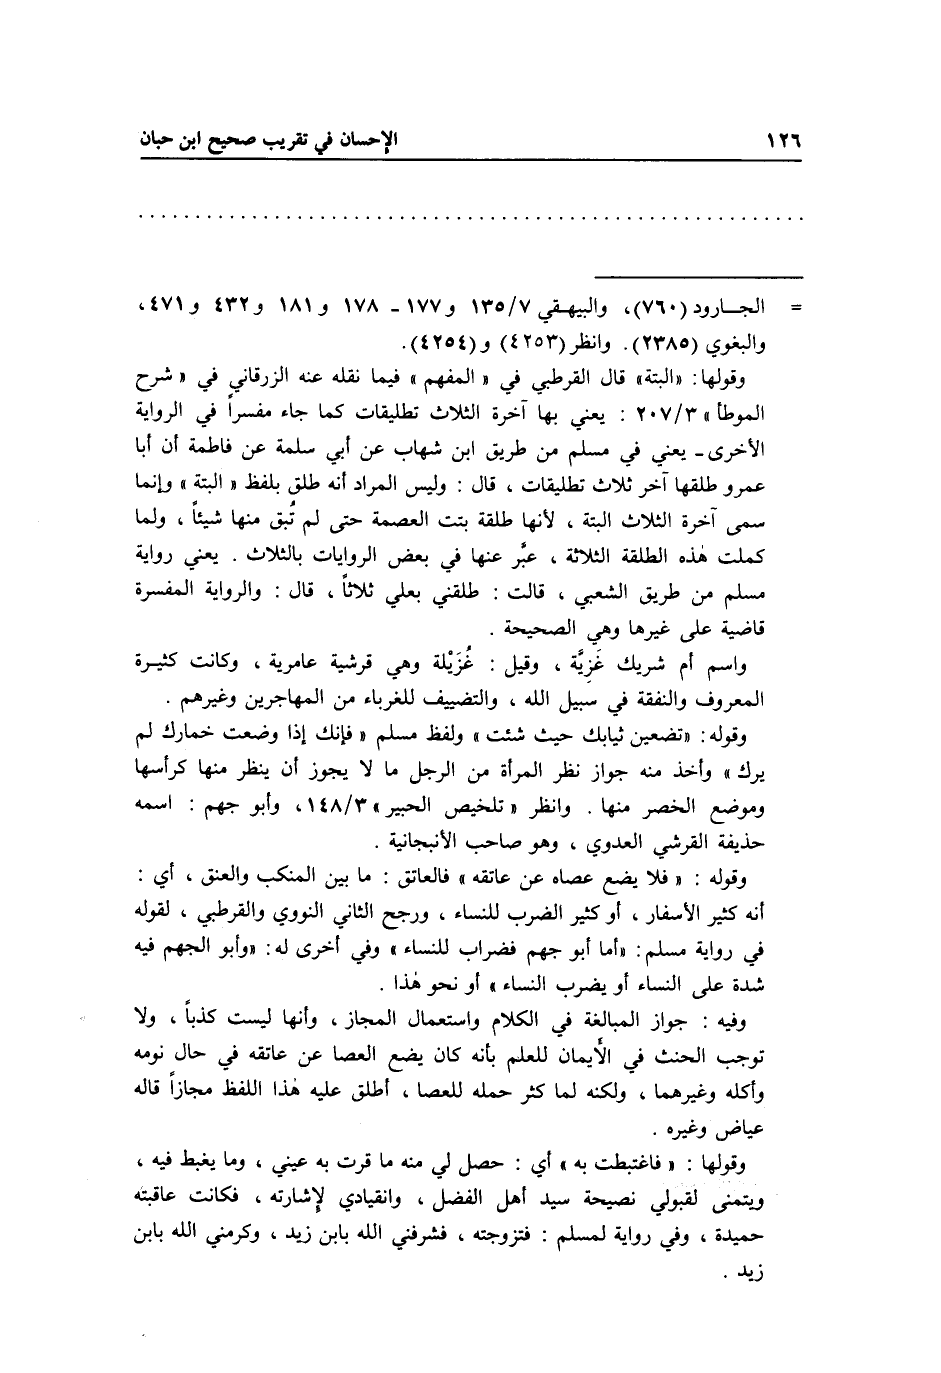 ١٢٦ الإحسان في تقريب صحيح ابن حبان
= الجـارود (٧٦٠)، والبيهـقي ١٣٥/٧ و١٧٧ ـ ١٧٨ و١٨١ و٤٣٢ و٤٧١،
والبغوي (٢٣٨٥). وانظر (٤٢٥٣) و(٤٢٥٤).
وقولها: «البتة» قال القرطبي في « المفهم » فيما نقله عنه الزرقاني في « شرح
الموطأ » ٢٠٧/٣ : يعني بها آخرة الثلاث تطليقات كما جاء مفسراً في الرواية
الأخرى ـ يعني في مسلم من طريق ابن شهاب عن أبي سلمة عن فاطمة أن أبا
عمرو طلقها آخر ثلاث تطليقات ، قال : وليس المراد أنه طلق بلفظ « البتة » وإنما
سمى آخرة الثلاث البتة ، لأنها طلقة بتت العصمة حتى لم تُبق منها شيئاً ، ولما
كملت هٰذه الطلقة الثلاثة ، عبَّر عنها في بعض الروايات بالثلاث . يعني رواية
مسلم من طريق الشعبي ، قالت : طلقني بعلي ثلاثاً ، قال : والرواية المفسرة
قاضية على غيرها وهي الصحيحة .
واسم أم شريك غَزِيَّة ، وقيل : غُزَيْلة وهي قرشية عامرية ، وكانت كثيـرة
المعروف والنفقة في سبيل الله ، والتضييف للغرباء من المهاجرين وغيرهم .
وقوله: «تضعين ثيابك حيث شئت » ولفظ مسلم « فإنك إذا وضعت خمارك لم
يرك » وأخذ منه جواز نظر المرأة من الرجل ما لا يجوز أن ينظر منها كرأسها
وموضع الخصر منها . وانظر « تلخيص الحبير » ١٤٨/٣، وأبو جهم : اسمه
حذيفة القرشي العدوي ، وهو صاحب الأنبجانية .
وقوله : « فلا يضع عصاه عن عاتقه » فالعاتق : ما بين المنكب والعنق ، أي :
أنه كثير الأسفار ، أو كثير الضرب للنساء ، ورجح الثاني النووي والقرطبي ، لقوله
في رواية مسلم: «أما أبو جهم فضراب للنساء » وفي أخرى له: «وأبو الجهم فيه
شدة على النساء أو يضرب النساء » أو نحو هٰذا .
وفيه : جواز المبالغة في الكلام واستعمال المجاز ، وأنها ليست كذباً ، ولا
توجب الحنث في الأَيمان للعلم بأنه كان يضع العصا عن عاتقه في حال نومه
وأكله وغيرهما ، ولكنه لما كثر حمله للعصا ، أطلق عليه هٰذا اللفظ مجازاً قاله
عياض وغيره .
وقولها : « فاغتبطت به » أي : حصل لي منه ما قرت به عيني ، وما يغبط فيه ،
ويتمنى لقبولي نصيحة سيد أهل الفضل ، وانقيادي لإشارته ، فكانت عاقبته
حميدة ، وفي رواية لمسلم : فتزوجته ، فشرفني الله بابن زيد ، وكرمني الله بابن
زيد .